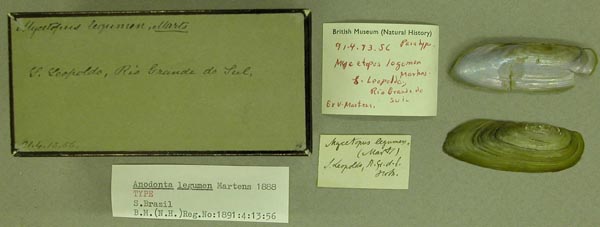 Mycetopus legumen, Marts
S. Leopoldo, Rio Grande do Sul.
91.4.13.56.
British Museum (Natural History)
91.4.13.56 Paratype
Mycetopus legumen
Martens
S. Leopoldo,
Rio Grande do
Sul
Ex V. Martens.
Mycetopus legumen,
(Marts)
S. Leopoldo, R. G. d. S.
Anodonta legumen Martens 1888
TYPE
S.Brazil
B.M.(N.H.)Reg.No:1891:4:13:56